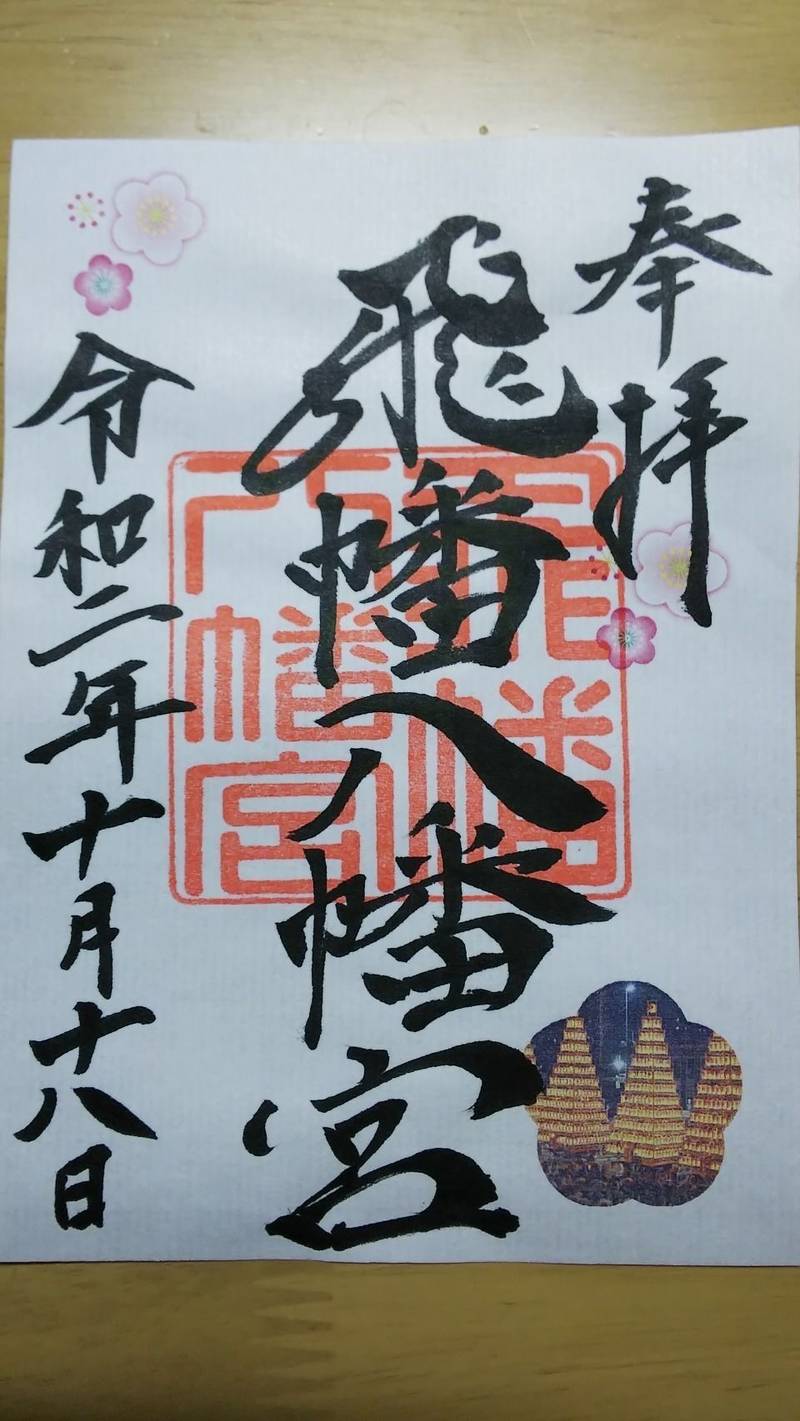 奉拝
飛幡八幡宮
飛幡八幡宮
令和二年十月十八日